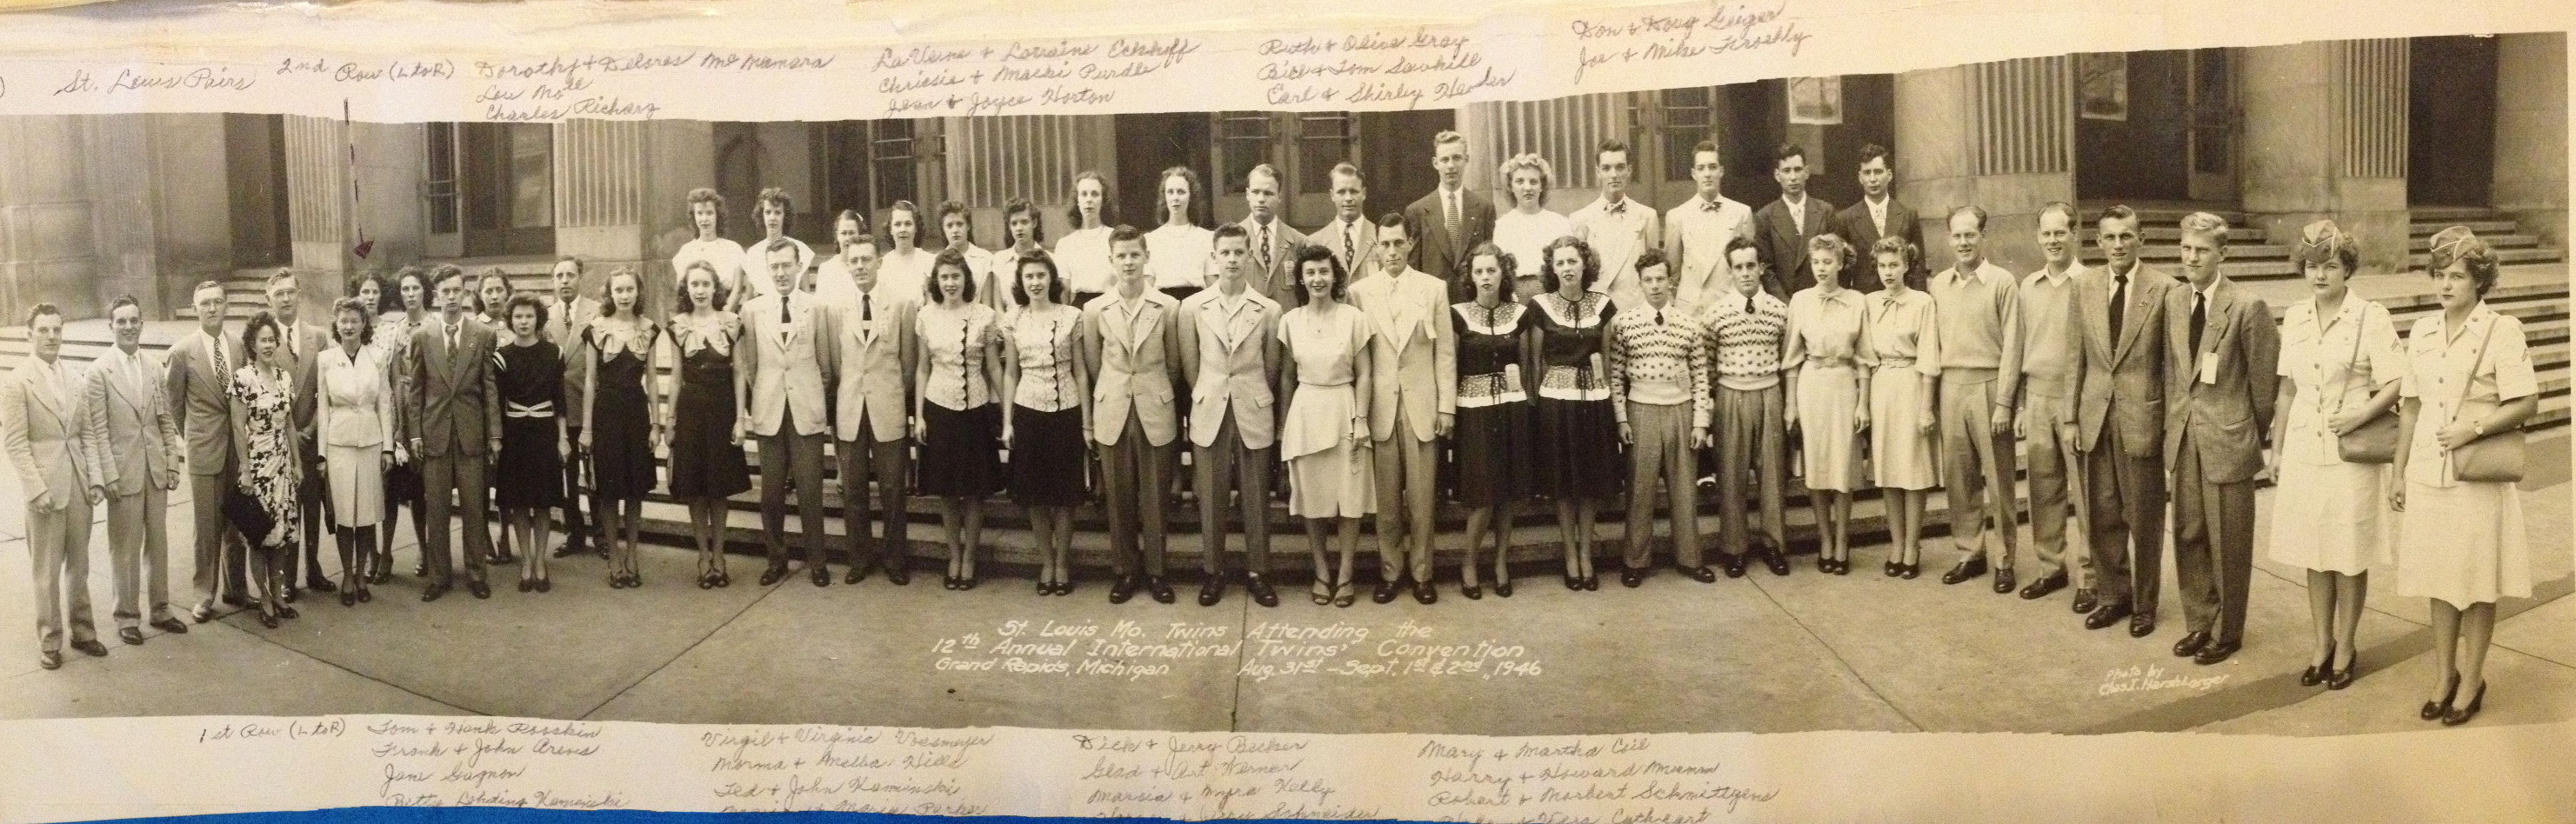 St. Louis Pairs
2nd Row (L to R)
Dorothy & Delores McNamara
Lou
Charles Richarz
LaVerne & Lorraine Eckhoff
Chrissie & Purdle
Jean & Joyce Horton
Ruth & Olive Gray
Bill & Tom Sawhill
Earl & Shirley
Don & Doug Geiger
Joe & Mike
St. Louis Mo. Twins Attending the
12th Annual International Twins' Convention
Grand Rapids, Michigan Aug. 31st - Sept. 1st & 2nd, 1946
Photo by
Chas. I. Harshbarger
1st Row (L to R)
Tom & Hank
Frank & John Arens
Jane Gagnon
Betty Kaminski
Virgil & Virginia
Norma & Melba Hille
Ted & John Kaminski
& Marie Parker
Dick & Jerry Becker
Glad & Art Werner
Marcia & Myra Kelly
& Schneider
Mary & Martha Coil
Harry & Howard
Robert & Norbert Schmittgens
& Vera Cathcart